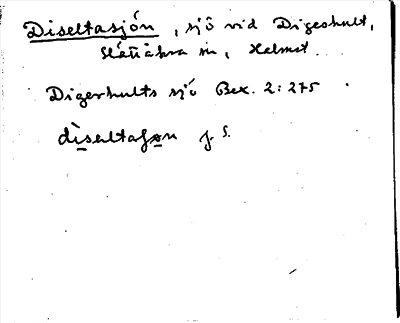 Diseltasjön, sjö vid Digeshult,
Slättåkra sn, Halmst.
Digerhults sjö Bex. 2:275
diseltaʃøn f S.